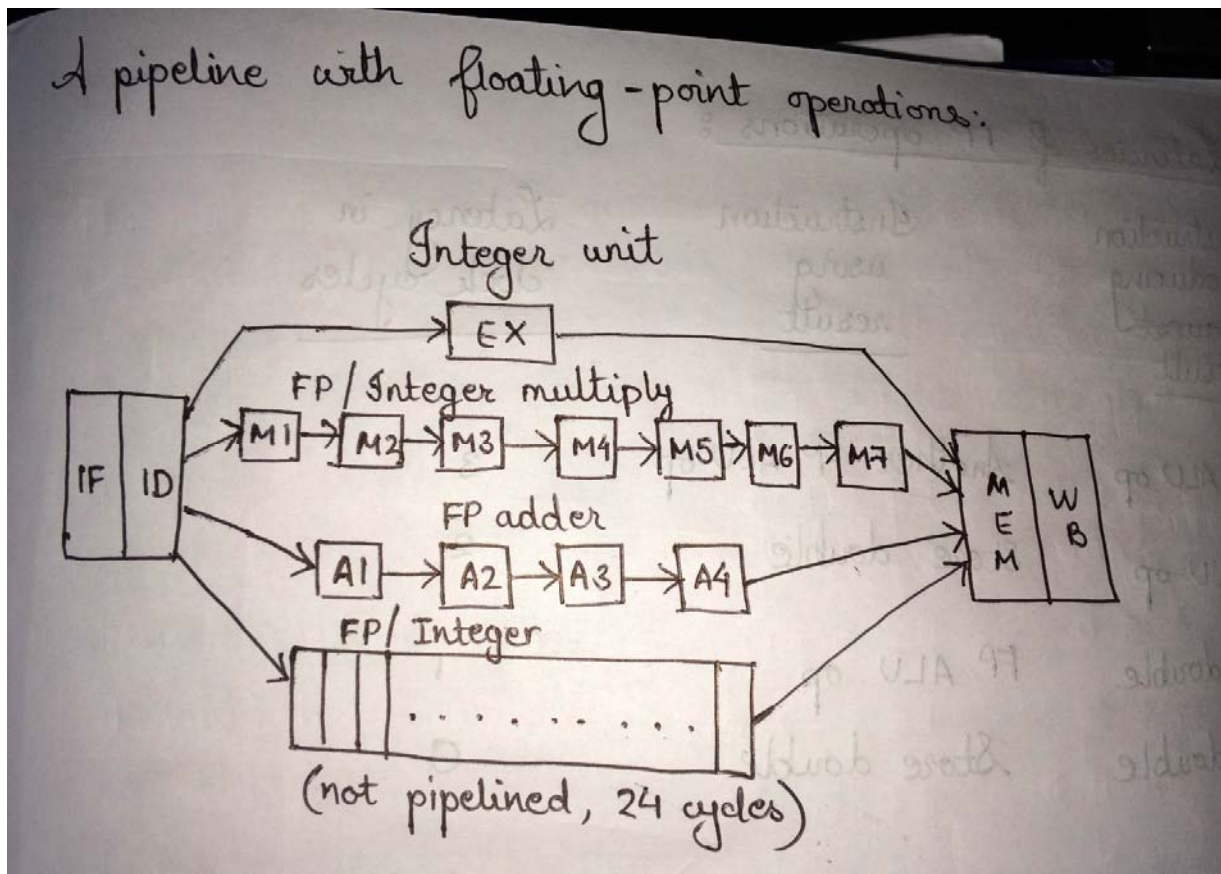 A pipeline with floating-point operations:
Integer unit
EX
FP/Integer multiply
M1 M2 M3 M4 M5 M6 M7
IF ID
MEM WB
FP adder
A1 A2 A3 A4
FP/Integer
. . . . . . . . .
(not pipelined, 24 cycles)